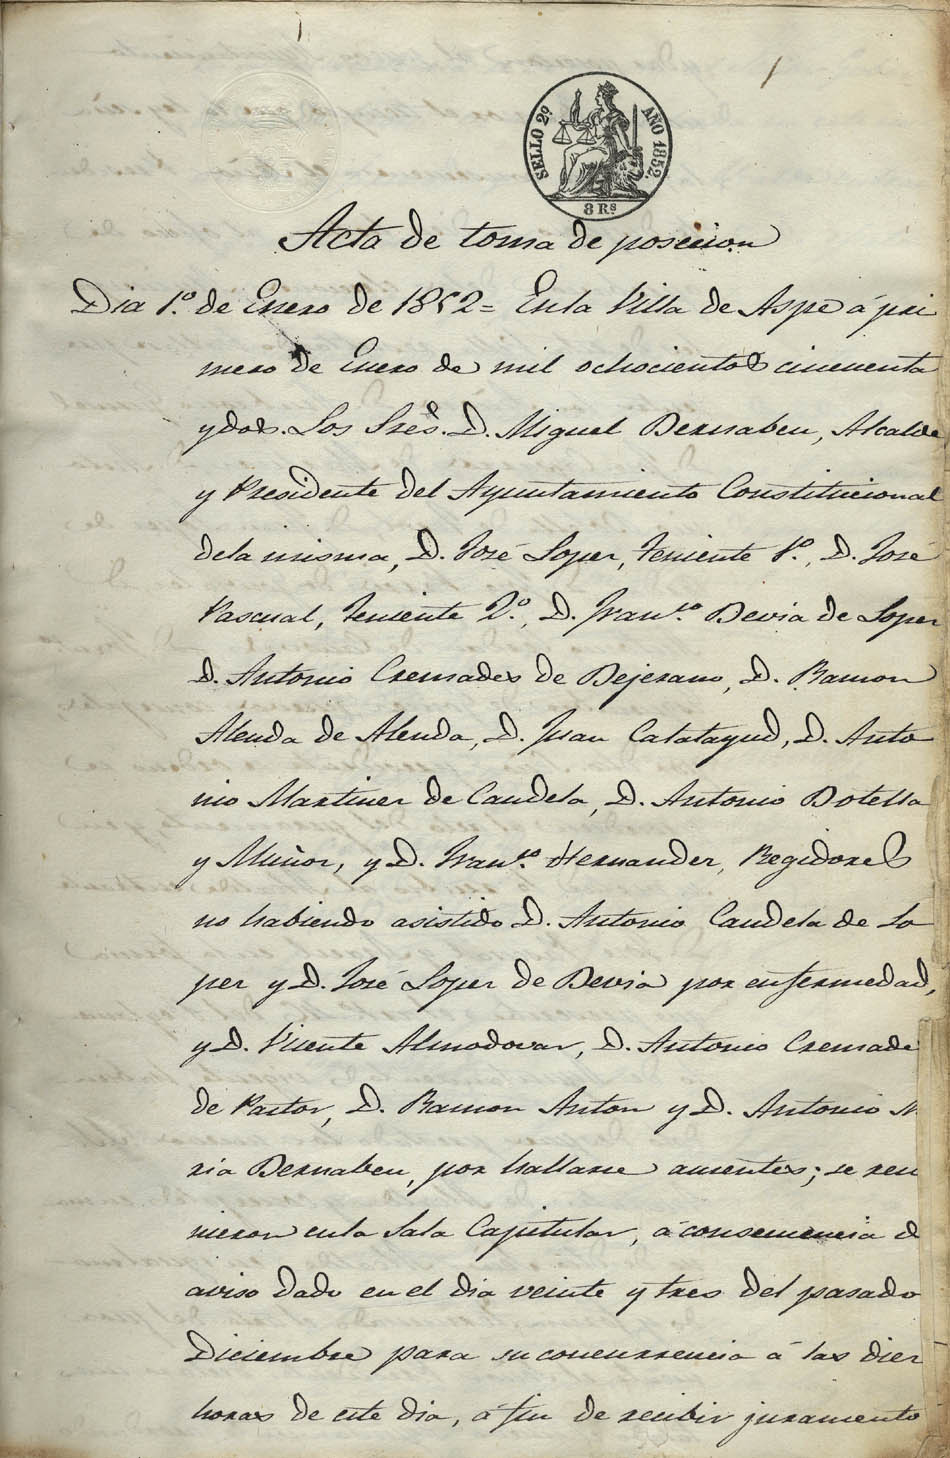 1
SELLO 2º AÑO 1852.
8 Rs
Acta de toma de posecion
Dia 1º. de Enero de 1852= En la Villa de Aspe á pri
mero de Enero de mil ochocientos cincuenta
y dos. Los Sres. D. Miguel Bernabeu, Alcalde
y Presidente del Ayuntamiento Constitucional
dela misma, D. José Loper, Teniente 1º., D. José
Pascual, Teniente 2º., D. Franco. Devia de Loper
D. Antonio Cremades de Bejerano, D. Ramon
Alenda de Alenda, D. Juan Calatayud, D. Anto
nio Martiner de Candela, D. Antonio Botella
y Muñor, y D. Franco. Hernander, Regidores
no habiendo asistido D. Antonio Candela de Lo
per y D. José Loper de Devia por enfermedad,
y D. Vicente Almodovar, D. Antonio Cremade
de Pastor, D. Ramon Anton y D. Antonio M
ria Bernabeu, por hallarse ausentes; se reu
nieron enla Sala Capitular, á consecuencia d
aviso dado en el dia veinte y tres del pasado
Diciembre para su concurrencia á las dier
horas de este dia, á fin de recibir juramento